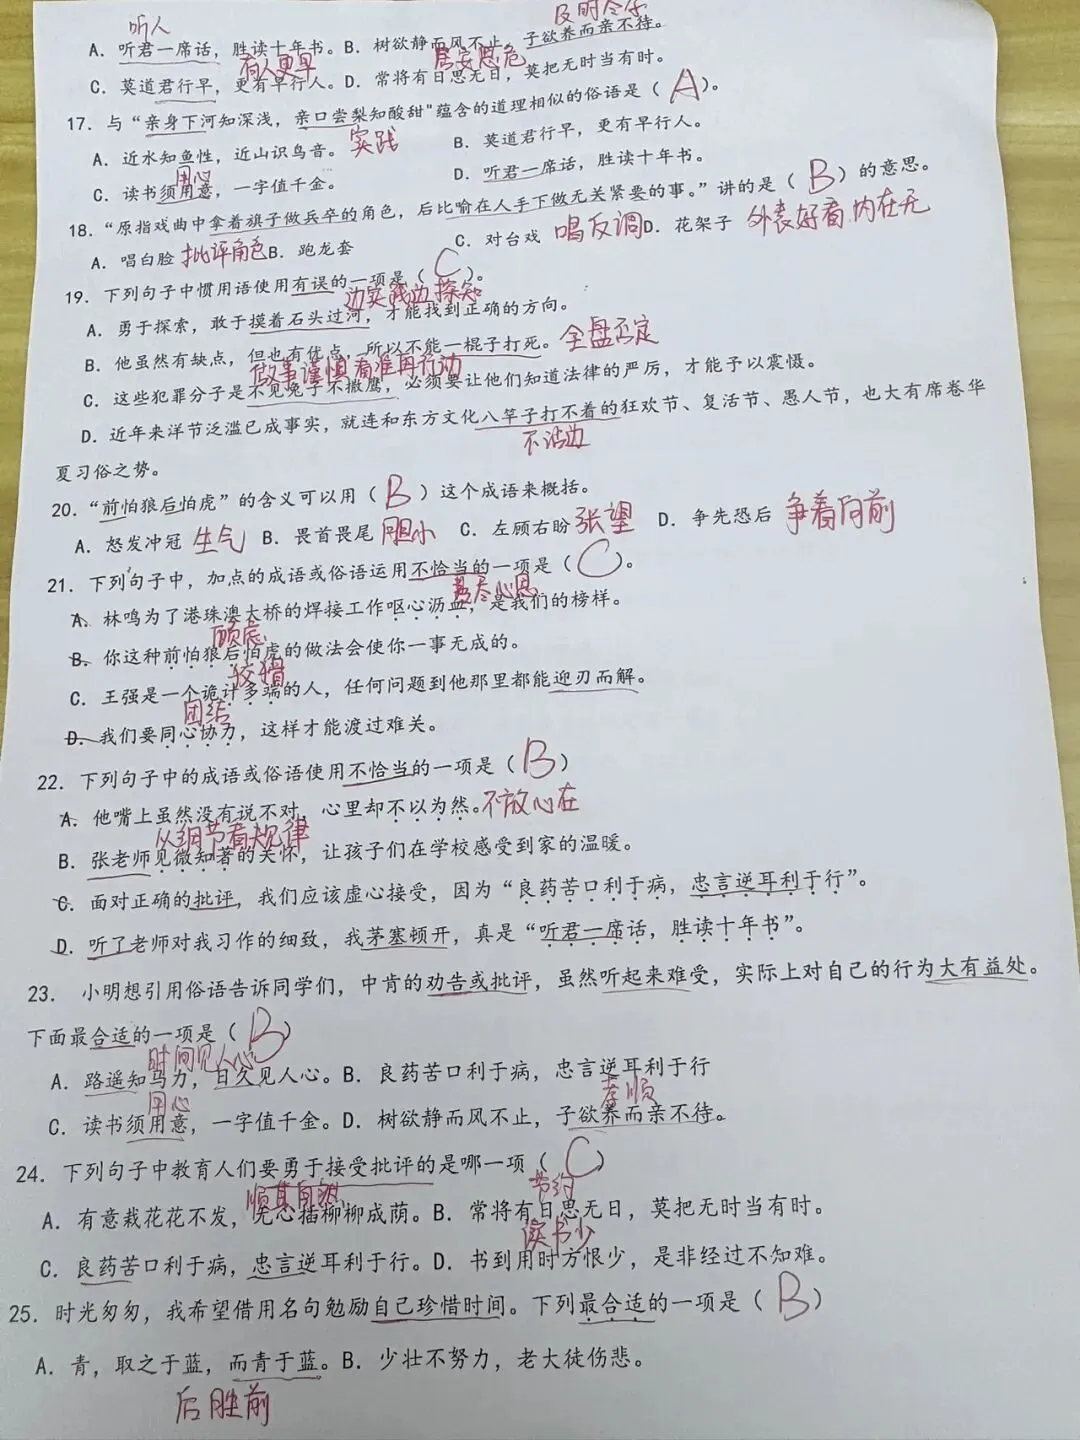 听人
及时尽孝
A. 听君一席话，胜读十年书。B. 树欲静而风不止，子欲养而亲不待。
有人更早
居安思危
C. 莫道君行早，更有早行人。D. 常将有日思无日，莫把无时当有时。
17. 与“亲身下河知深浅，亲口尝梨知酸甜"蕴含的道理相似的俗语是（ A ）。
A. 近水知鱼性，近山识鸟音。 实践 B. 莫道君行早，更有早行人。
用心
C. 读书须用意，一字值千金。 D. 听君一席话，胜读十年书。
18. “原指戏曲中拿着旗子做兵卒的角色，后比喻在人手下做无关紧要的事。”讲的是（ B ）的意思。
A. 唱白脸 批评角色 B. 跑龙套 C. 对台戏 唱反调 D. 花架子 外表好看,内在无
19. 下列句子中惯用语使用有误的一项是（ C ）。
边实践边探知
A. 勇于探索，敢于摸着石头过河，才能找到正确的方向。
B. 他虽然有缺点，但也有优点，所以不能一棍子打死。 全盘否定
做事谨慎看准再行动
C. 这些犯罪分子是不见兔子不撒鹰，必须要让他们知道法律的严厉，才能予以震慑。
D. 近年来洋节泛滥已成事实，就连和东方文化八竿子打不着的狂欢节、复活节、愚人节，也大有席卷华
不沾边
夏习俗之势。
20. “前怕狼后怕虎”的含义可以用（ B ）这个成语来概括。
A. 怒发冲冠 生气 B. 畏首畏尾 胆小 C. 左顾右盼 张望 D. 争先恐后 争着向前
21. 下列句子中，加点的成语或俗语运用不恰当的一项是（ C ）。
费尽心思
A. 林鸣为了港珠澳大桥的焊接工作呕心沥血，是我们的榜样。
顾虑
B. 你这种前怕狼后怕虎的做法会使你一事无成的。
狡猾
C. 王强是一个诡计多端的人，任何问题到他那里都能迎刃而解。
团结
D. 我们要同心协力，这样才能渡过难关。
22. 下列句子中的成语或俗语使用不恰当的一项是（ B ）
A. 他嘴上虽然没有说不对，心里却不以为然。 不放心在
从细节看规律
B. 张老师见微知著的关怀，让孩子们在学校感受到家的温暖。
C. 面对正确的批评，我们应该虚心接受，因为“良药苦口利于病，忠言逆耳利于行”。
D. 听了老师对我习作的细致，我茅塞顿开，真是“听君一席话，胜读十年书”。
23. 小明想引用俗语告诉同学们，中肯的劝告或批评，虽然听起来难受，实际上对自己的行为大有益处。
下面最合适的一项是（ B ）
时间见人心
A. 路遥知马力，日久见人心。B. 良药苦口利于病，忠言逆耳利于行
用心
孝顺
C. 读书须用意，一字值千金。D. 树欲静而风不止，子欲养而亲不待。
24. 下列句子中教育人们要勇于接受批评的是哪一项（ C ）
顺其自然
节约
A. 有意栽花花不发，无心插柳柳成荫。B. 常将有日思无日，莫把无时当有时。
读书少
C. 良药苦口利于病，忠言逆耳利于行。D. 书到用时方恨少，是非经过不知难。
25. 时光匆匆，我希望借用名句勉励自己珍惜时间。下列最合适的一项是（ B ）
A. 青，取之于蓝，而青于蓝。B. 少壮不努力，老大徒伤悲。
后胜前